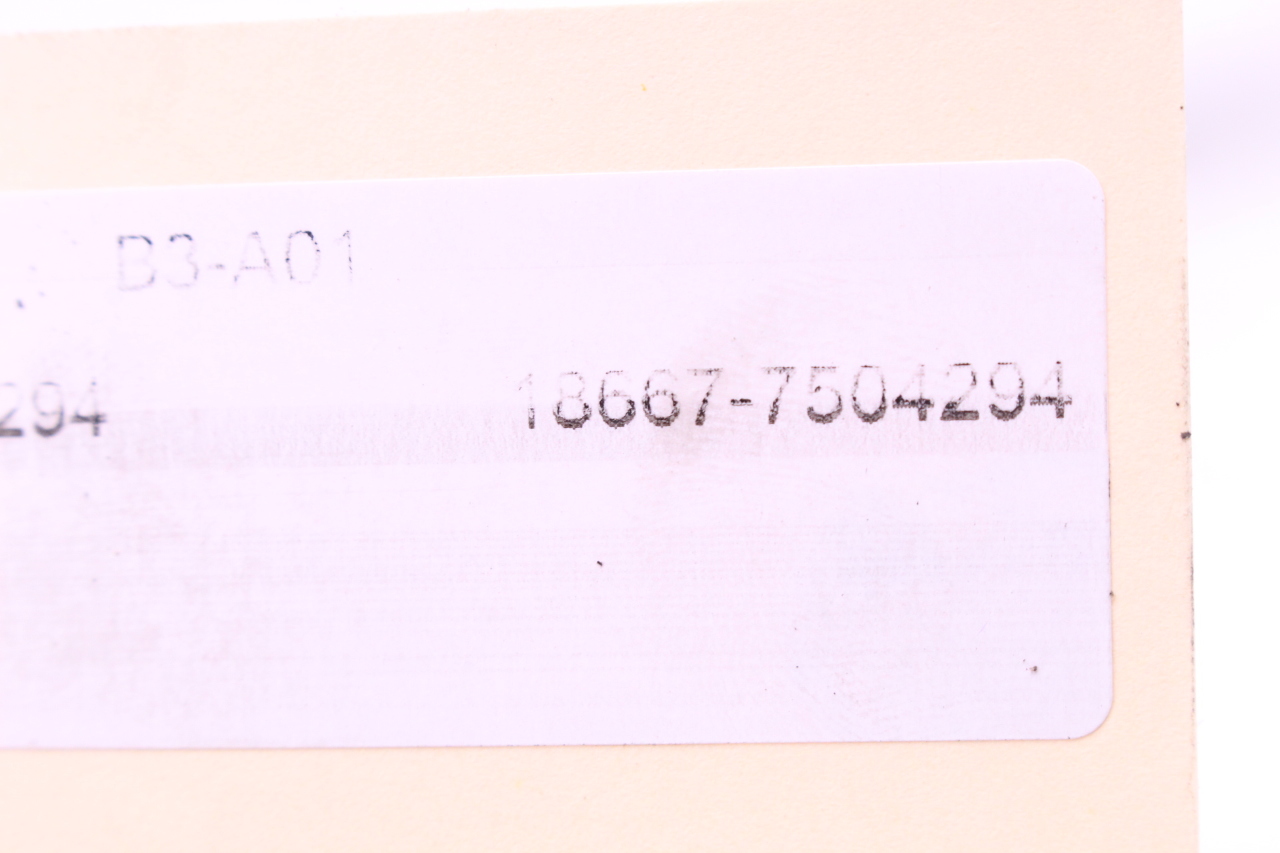 B3-A01
294 18667-7504294